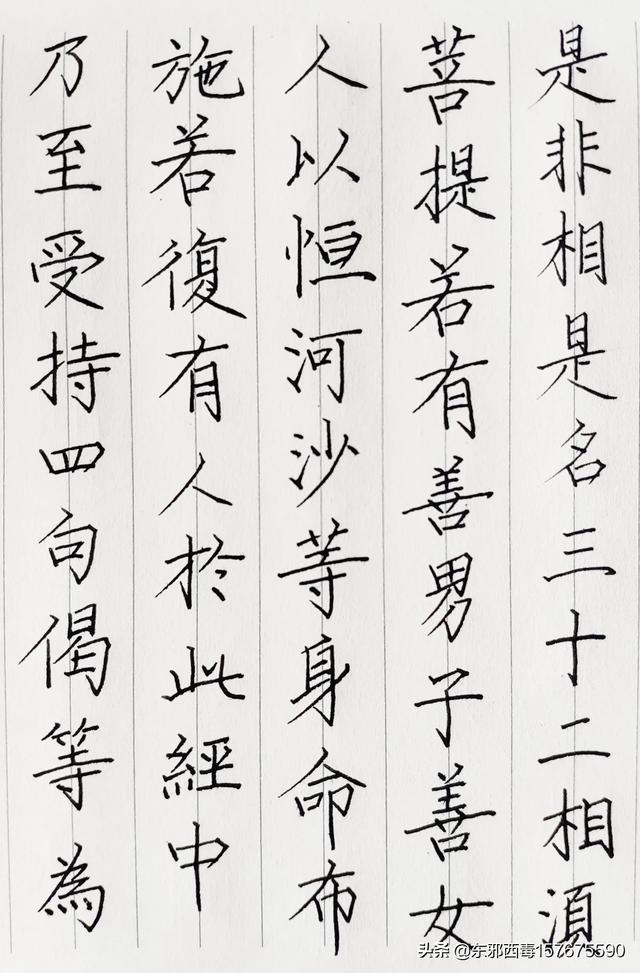 是非相是名三十二相湏
菩提若有善男子善女
人以恒河沙等身命布
施若復有人於此經中
乃至受持四句偈等為
头条 @东邪西毒157675590